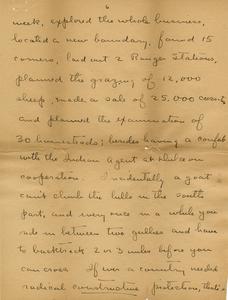 6
week, explored the whole business,
located a new boundary, found 15
corners, laid out 2 Ranger Stations,
planned the grazing of 12,000
sheep, made a sale of 25,000 cords
and planned the examination of
30 homesteads; besides having a confab
with the Indian Agent at Dulce on
cooperation. Incidentally a goat
can't climb the hills in the south
part, and every once in a while you
ride in between two gullies and have
to backtrack 2 or 3 miles before you
can cross. If ever a country needed
radical constructive protection, that's